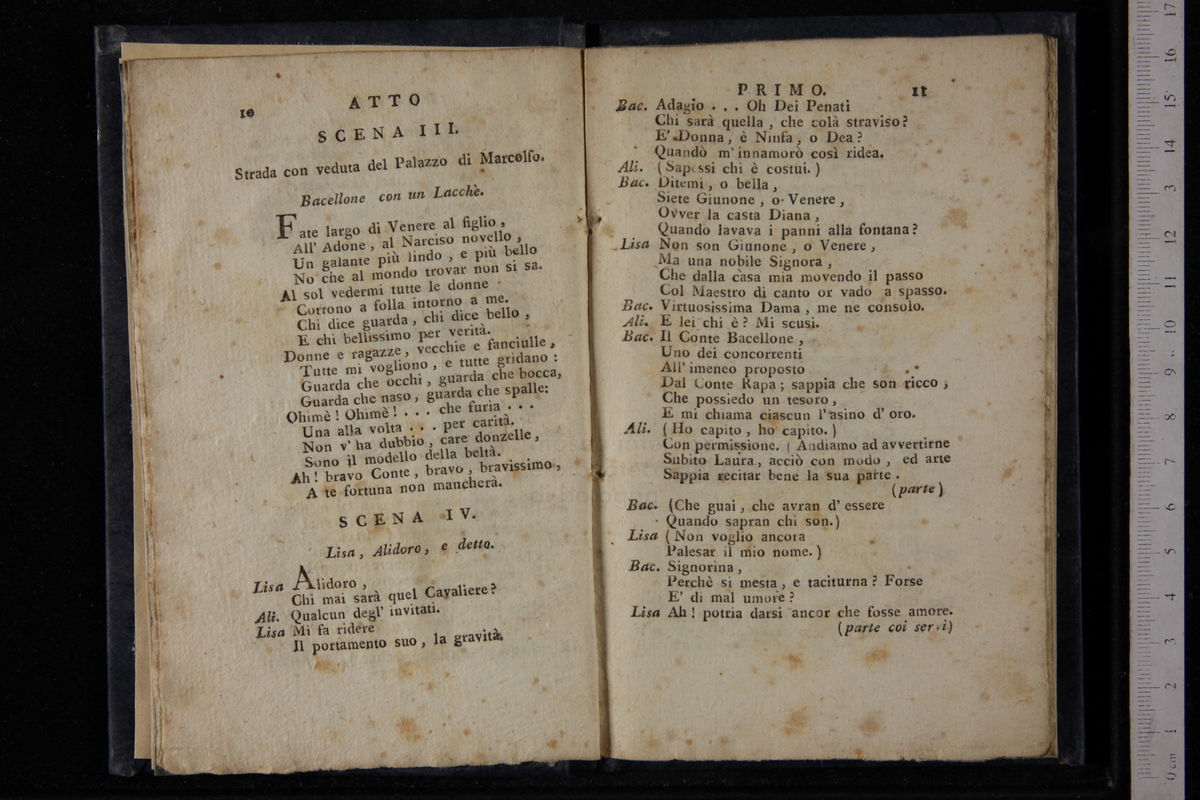 10
ATTO
SCENA III.
Strada con veduta del Palazzo di Marcolfo.
Bacellone con un Lacchè.
Fate largo di Venere al figlio,
All' Adone, al Narciso novello,
Un galante più lindo, e più bello
No che al mondo trovar non si sa.
Al sol vedermi tutte le donne
Corrono a folla intorno a me.
Chi dice guarda, chi dice bello,
E chi bellissimo per verità.
Donne e ragazze, vecchie e fanciulle,
Tutte mi vogliono, e tutte gridano:
Guarda che occhi, guarda che bocca,
Guarda che naso, guarda che spalle:
Ohimè! Ohimè!... che furia...
Una alla volta... per carità.
Non v'ha dubbio, care donzelle,
Sono il modello della beltà.
Ah! bravo Conte, bravo, bravissimo,
A te fortuna non mancherà.
SCENA IV.
Lisa, Alidoro, e detto.
Lisa Alidoro,
Chi mai sarà quel Cavaliere?
Ali. Qualcun degl' invitati.
Lisa Mi fa ridere
Il portamento suo, la gravità.
PRIMO. 11
Bac. Adagio... Oh Dei Penati
Chi sarà quella, che colà straviso?
E' Donna, è Ninfa, o Dea?
Quandò m'innamorò così ridea.
Ali. (Sapessi chi è costui.)
Bac. Ditemi, o bella,
Siete Giunone, o Venere,
Ovver la casta Diana,
Quando lavava i panni alla fontana?
Lisa Non son Giunone, o Venere,
Ma una nobile Signora,
Che dalla casa mia movendo il passo
Col Maestro di canto or vado a spasso.
Bac. Virtuosissima Dama, me ne consolo.
Ali. E lei chi è? Mi scusi.
Bac. Il Conte Bacellone,
Uno dei concorrenti
All' imeneo proposto
Dal Conte Rapa; sappia che son ricco,
Che possiedo un tesoro,
E mi chiama ciascun l'asino d' oro.
Ali. (Ho capito, ho capito.)
Con permissione. (Andiamo ad avvertirne
Subito Laura, acciò con modo, ed arte
Sappia recitar bene la sua parte.
(parte)
Bac. (Che guai, che avran d' essere
Quando sapran chi son.)
Lisa (Non voglio ancora
Palesar il mio nome.)
Bac. Signorina,
Perchè si mesta, e taciturna? Forse
E' di mal umore?
Lisa Ah! potria darsi ancor che fosse amore.
(parte coi servi)